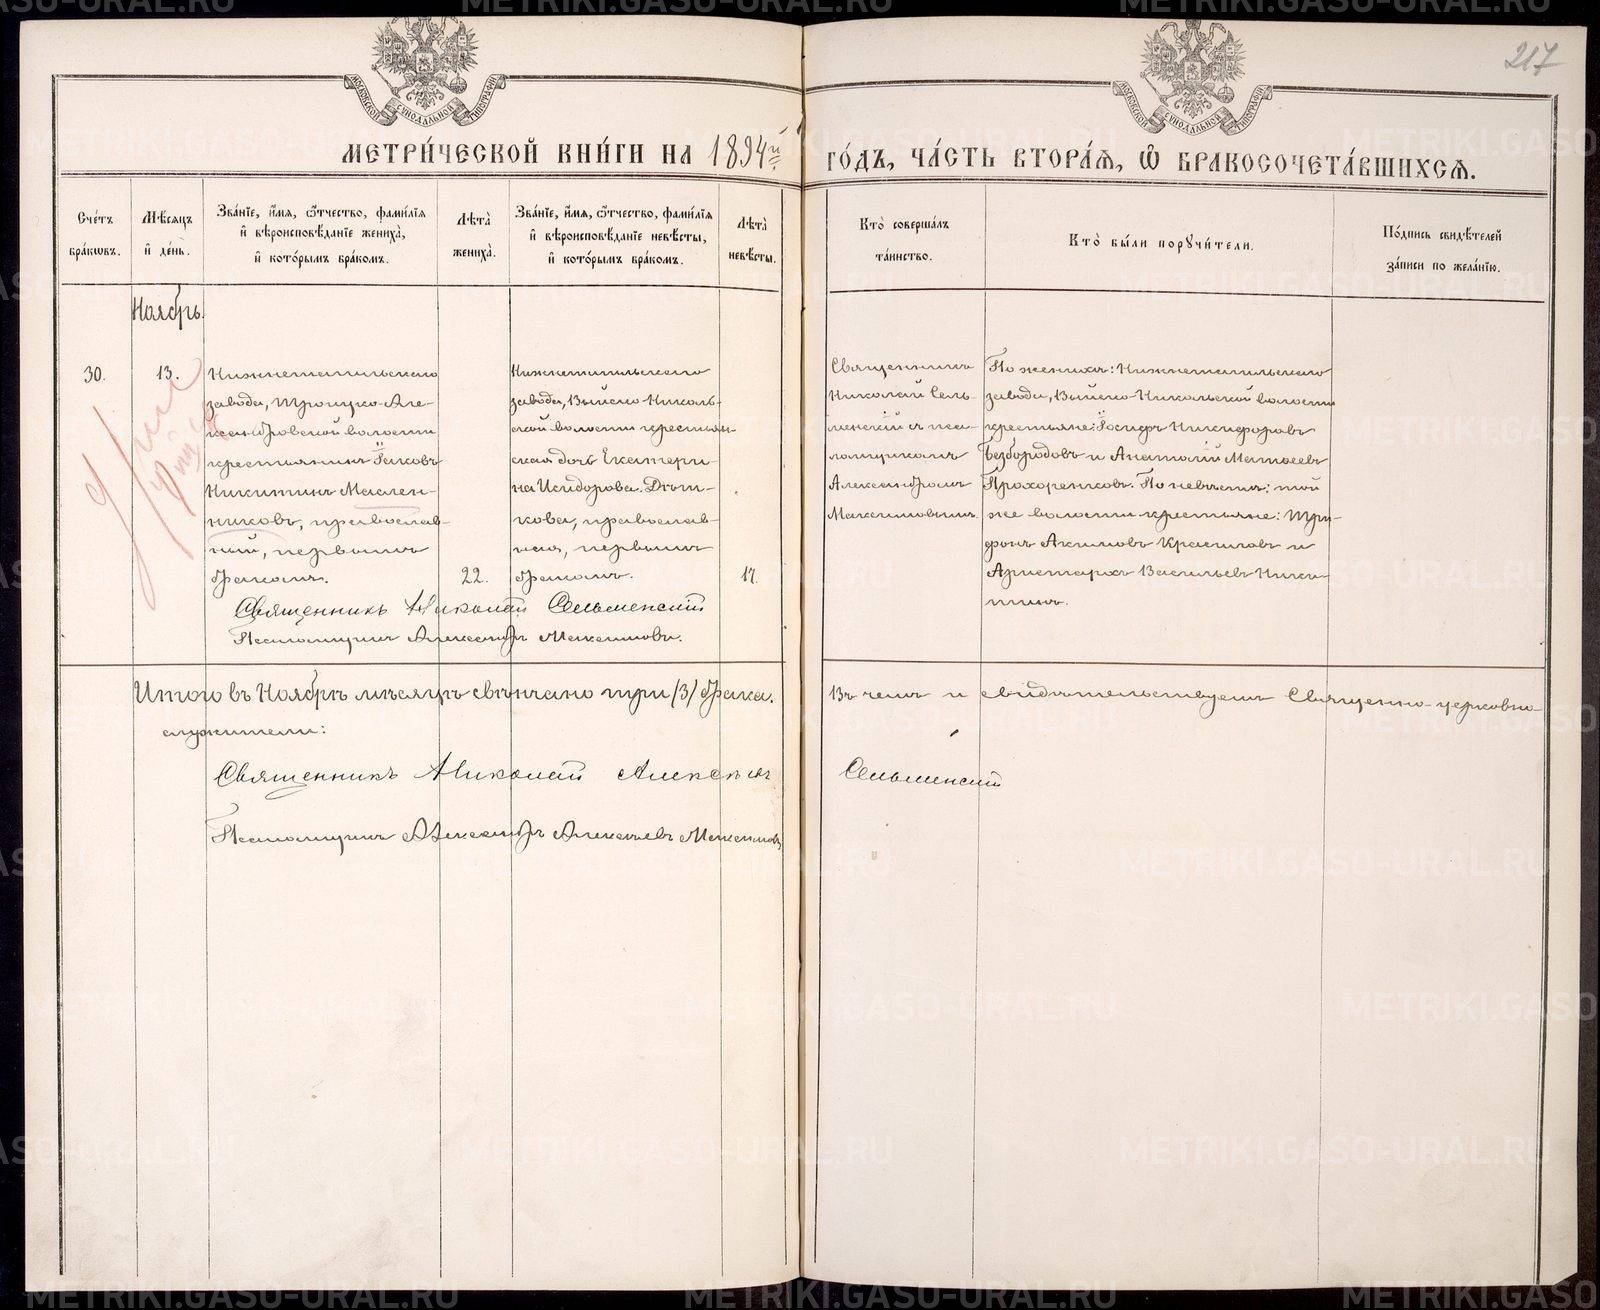 217
МОСКОВСКОЙ СѴНОДАЛЬНОЙ ТИПОГРАФІИ
МОСКОВСКОЙ СѴНОДАЛЬНОЙ ТИПОГРАФІИ
МЕТРИ́ЧЕСКОЙ КНИ́ГИ НА 1894й ГО́ДЪ, ЧА́СТЬ ВТОРА́Я, Ѽ БРАКОСОЧЕТА́ВШИХСЯ.
Сче́тъ
бра́кѡвъ.
Мѣ́сяцъ
и҆ де́нь.
Зва́нїе, и҆́мя, ѻ҆́тчество, фами́лїя
и҆ вѣроисповѣ́данїе жениха̀,
и҆ кото́рымъ бра́комъ.
Лѣ́та̀
жениха̀.
Зва́нїе, и҆́мя, ѻ҆́тчество, фами́лїя
и҆ вѣроисповѣ́данїе невѣ́сты,
и҆ кото́рымъ бра́комъ.
Лѣ́та̀
невѣ́сты.
Кто̀ соверша́лъ
та́инство.
Кто̀ бы́ли порꙋчи́тели.
По́дпись свидѣ́телей
за́писи по жела́нїю.
Ноябрь.
30.
13.
Нижнетагильскаго
завода, Троицко-Але-
ксандровской волости
крестьянинъ Іаковъ
Никитинъ Маслен-
никовъ, православ-
ный, первымъ
бракомъ.
22.
Нижнетагильскаго
завода, Выйско-Николь-
ской волости крестьян-
ская дочь Екатери-
на Исидорова
кова, православ-
ная, первымъ
бракомъ.
17.
Священникъ Николай Сельменскій
Псаломщикъ Александръ Максимовъ.
Священникъ
Николай Сель-
менскій с пса-
ломщикомъ
Александромъ
Максимовымъ.
По женихѣ: Нижнетагильскаго
завода, Выйско-Никольской волости
крестьяне: Іосифъ Никифоровъ
Безбородовъ и Анатолій Матѳеевъ
Прохоренковъ. По невѣстѣ: той
же волости крестьяне: Три-
фонъ Акимовъ Красиловъ и
Аристархъ Васильевъ Ники-
тинъ.
Итого въ Ноябрѣ мѣсяцѣ свѣнчано три (3) брака. Въ чемъ и свидѣтельствуемъ Священно-церковно-
служители:
Священникъ Николай Алексѣевъ Сельменскій
Псаломщикъ Александръ Алексѣевъ Максимовъ
METRIKI.GASO-URAL.RU